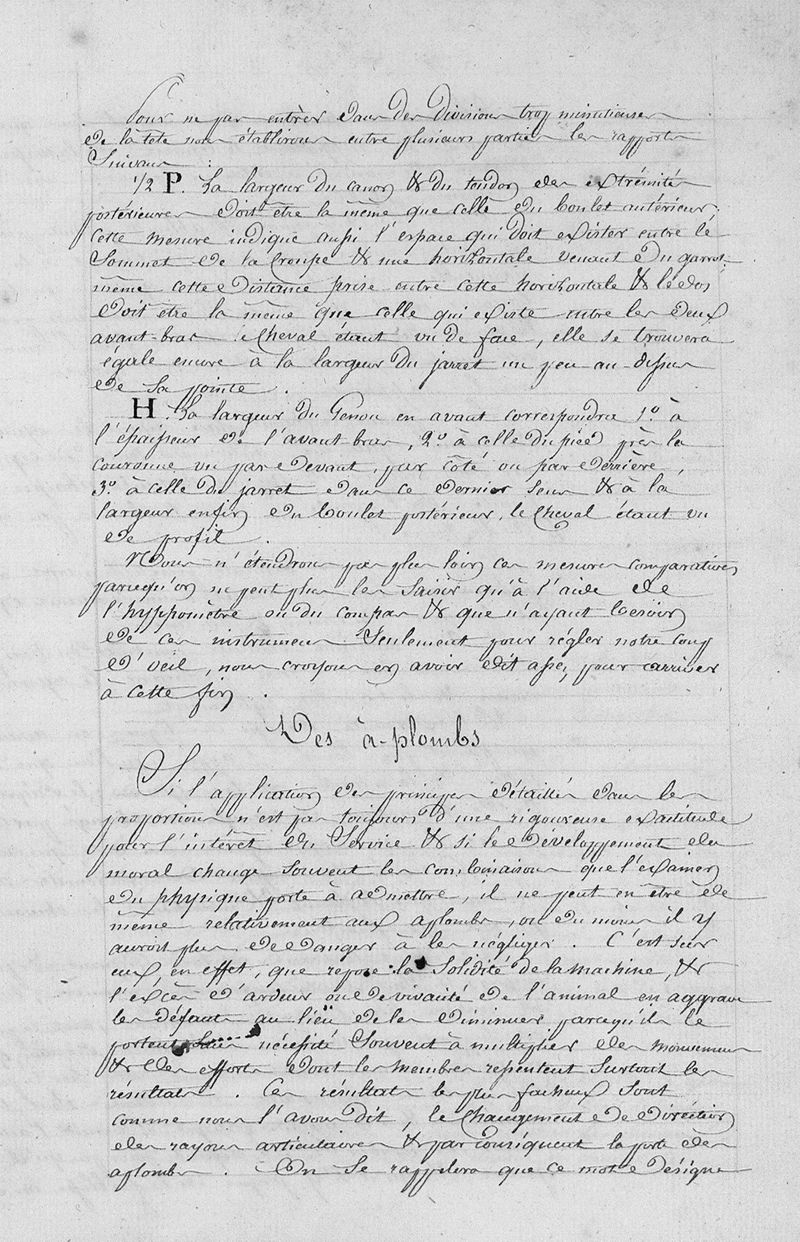 Pour ne pas entrer dans des divisions trop minutieuses
de la tete nous établirons entre plusieurs parties les rapports
Suivans :
1/2 P. La largeur du canon & du tendon des extrémités
postérieures doit être la même que celle du boulet antérieur,
cette mesure indique aussi l'espace qui doit exister entre le
Sommet de la Croupe & une horizontale venant du garrot,
même cette distance prise entre cette horizontale & le dos
doit être la même que celle qui existe entre les deux
avant-bras le Cheval étant vu de face, elle se trouvera
égale encore à la largeur du jarret un peu au-dessus
de sa pointe.
H. La largeur du Genou en avant correspondra 1º à
l'épaisseur de l'avant bras, 2º à celle du pied près la
couronne vu par devant, par côté ou par derrière,
3º à celle du jarret dans ce dernier sens & à la
largeur enfin du boulet postérieur, le Cheval étant vu
de profil.
Nous n'étendrons pas plus loin ces mesures comparatives
parcequ'on ne peut plus les saisir qu'à l'aide de
l'hyppomètre ou du compas & que n'ayant besoin
de ces instrumens Seulement pour régler notre coup
d'oeil, nous croyons en avoir dit assez pour arriver
à cette fin.
Des à-plombs
Si l'application des principes détaillés dans les
proportions n'est pas toujours d'une rigoureuse exactitude
pour l'intérêt du Service & si le développement du
moral change souvent les combinaisons que l'examen
du physique porte à admettre, il ne peut en être de
même relativement aux aplombs, ou du moins il y
auroit plus de danger à les négliger. C'est sur
eux, en effet, que repose la Solidité de la machine, &
l'excès d'ardeur ou de vivacité de l'animal en aggrave
les défauts au lieu de les diminuer parcequ'ils le
portent sans nécéssité Souvent à multiplier des mouvemens
& des efforts dont les membres repentent Surtout les
résultats. Ces résultats les plus facheux sont
comme nous l'avons dit, le Changement de direction
des rayons articulaires & par conséquent la perte des
aplombs. On Se rappelera que ce mot désigne